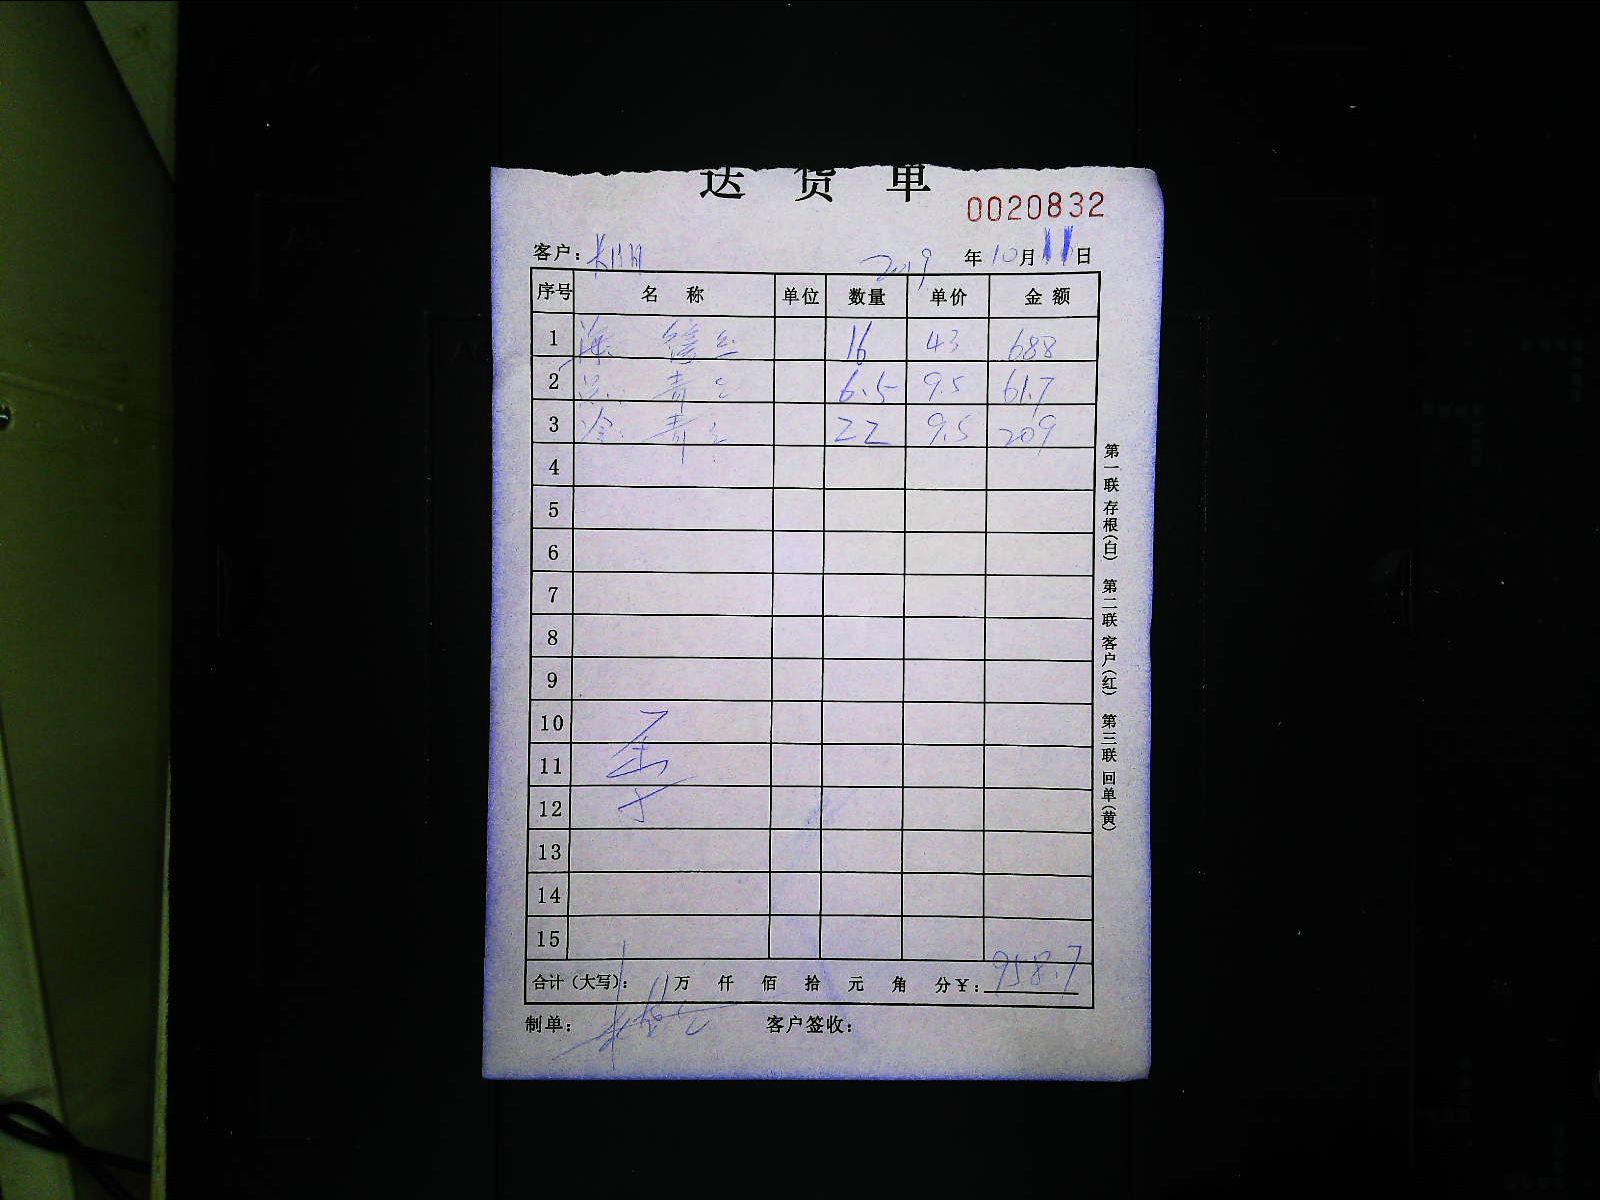 送货单
0020832
客户： 2019年10月11日
序号 名称 单位 数量 单价 金额
1 16 43 688
2 青 6.5 9.5 61.7
3 冷 青 22 9.5 209
4
5
6
7
8
9
10
11
12
13
14
15
合计(大写)： 万 仟 佰 拾 元 角 分 ￥：958.7
制单： 客户签收：
第一联 存根(白) 第二联 客户(红) 第三联 回单(黄)